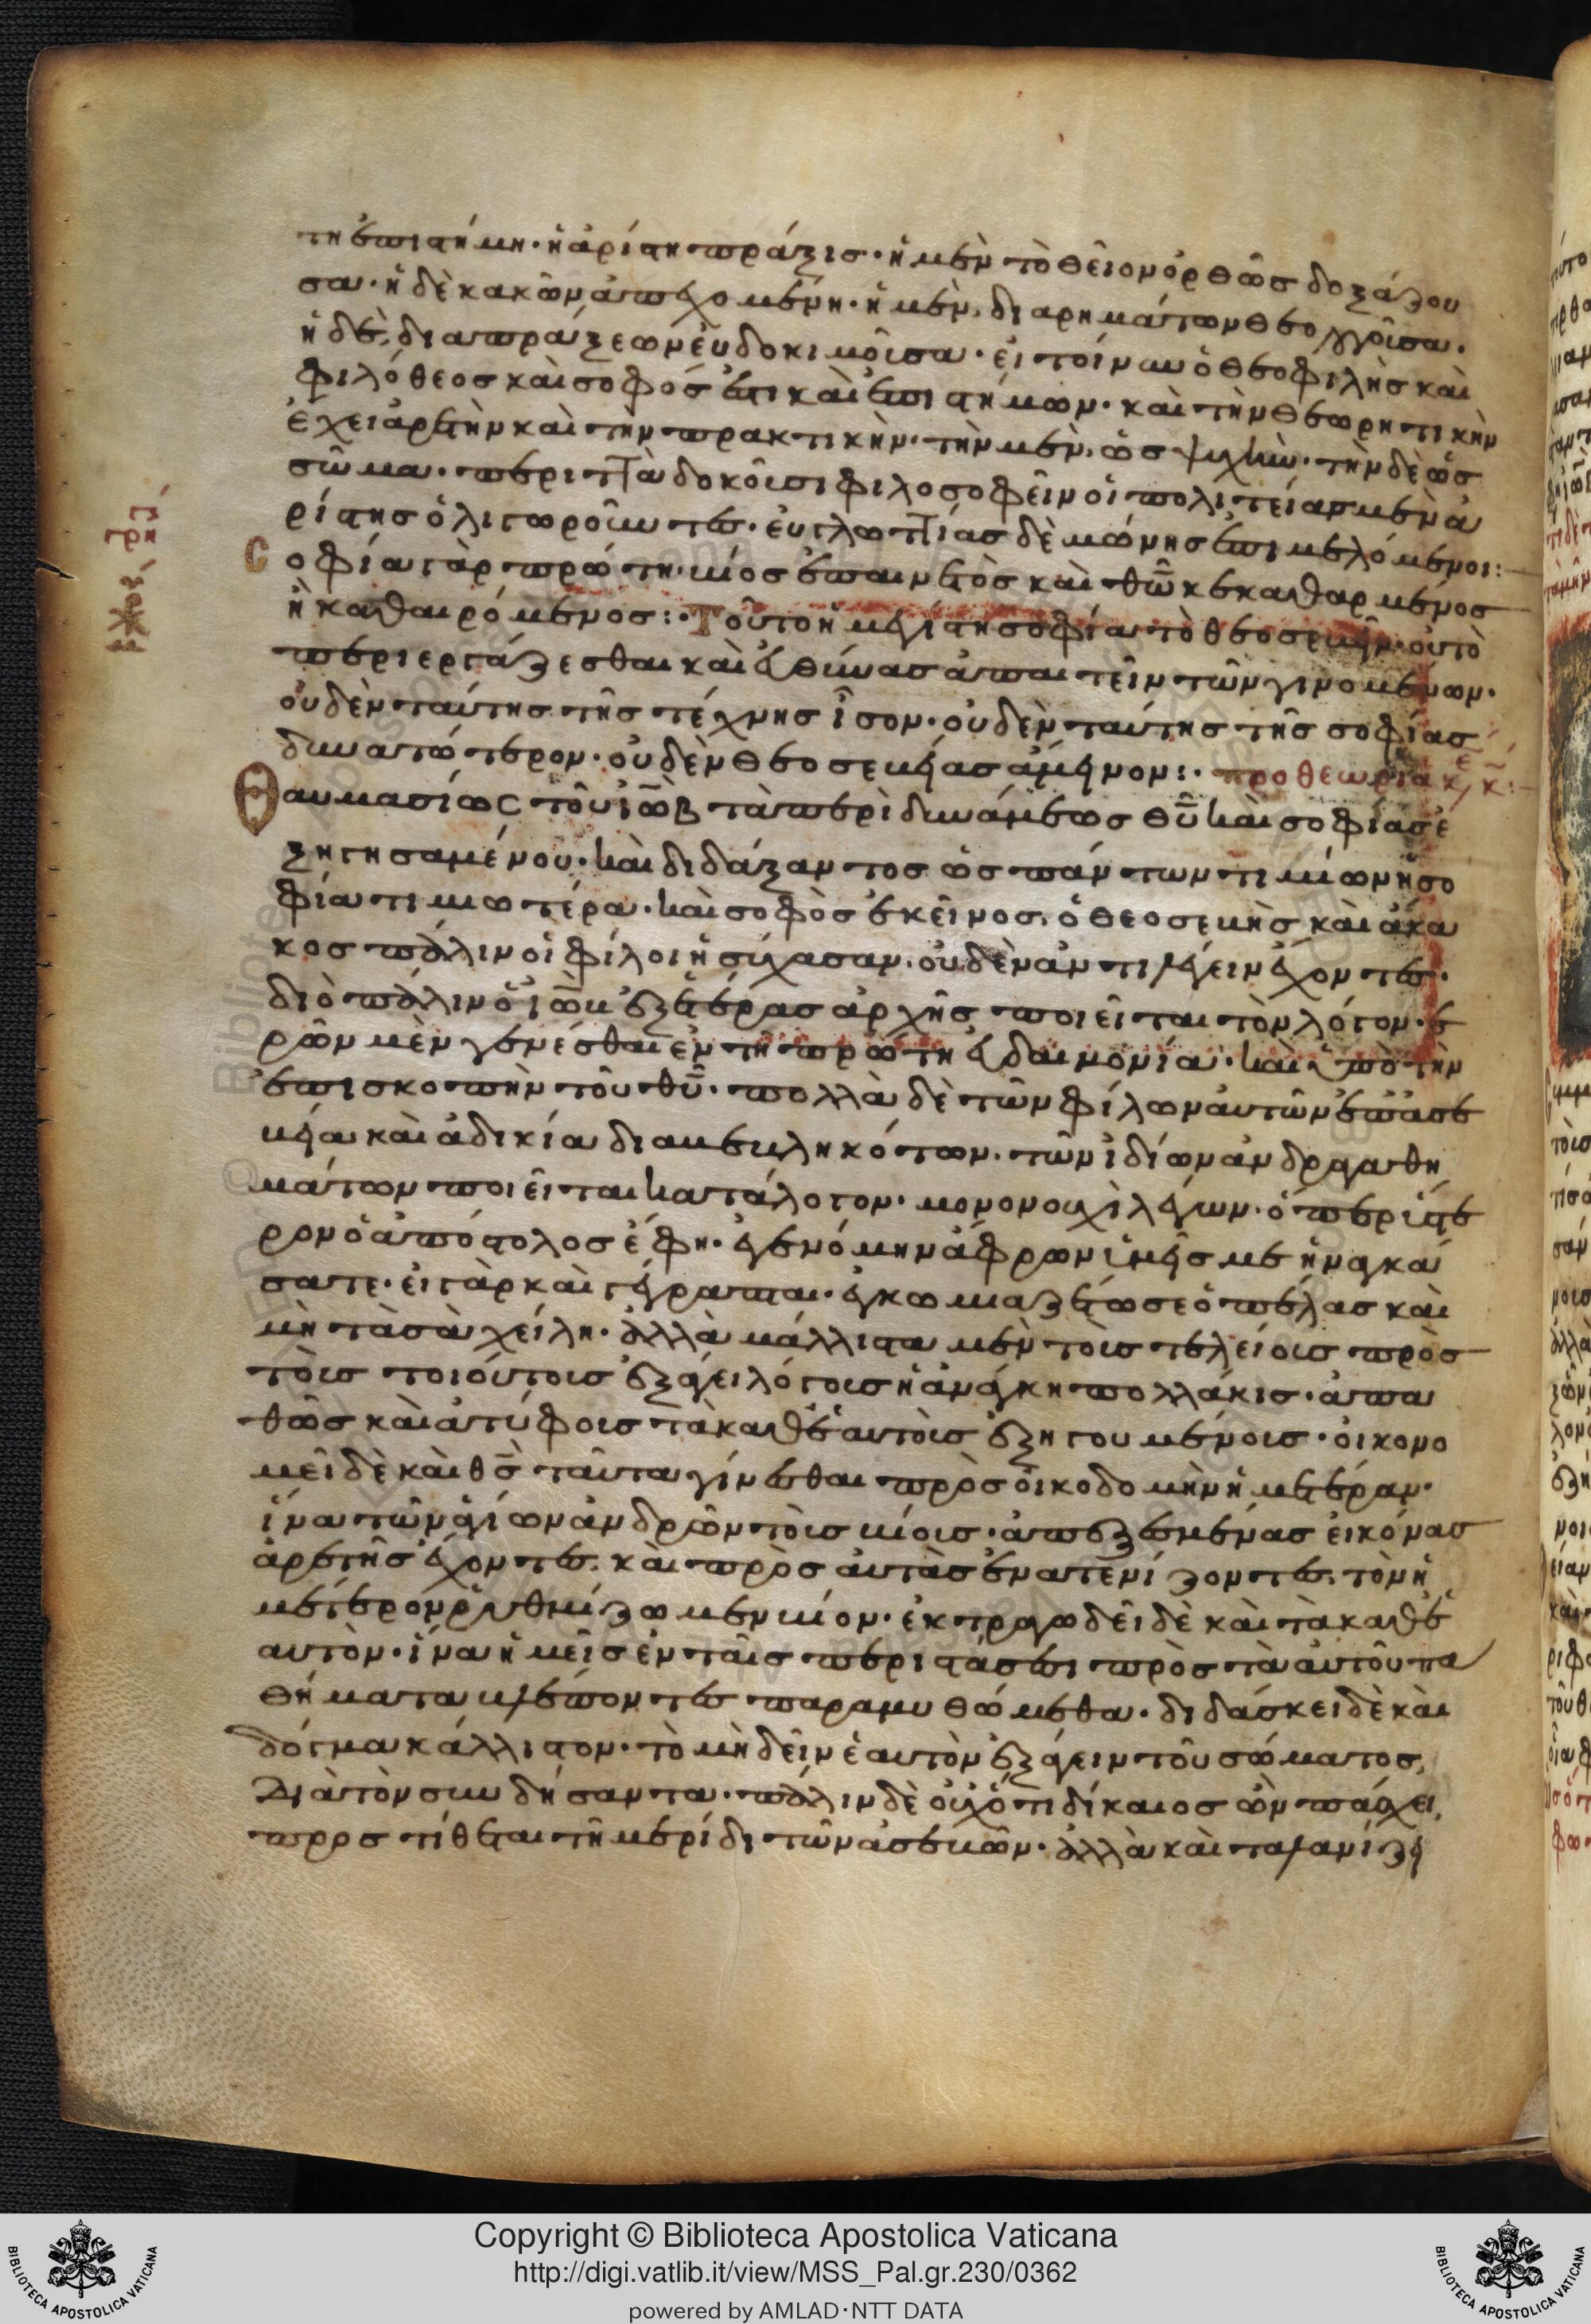 τη ἐπιστήμη· ἡ ἀρίστη πράξις· ἡ μὲν τὸ θεῖον ὀρθῶς δοξάζου
σα· ἡ δὲ κακῶν ἀπεχομένη· ἡ μὲν διὰ ῥημάτων θεολογοῦσα·
ἡ δὲ, διὰ πράξεων εὐδοκιμοῦσα· εἰ τοίνυν ὁ θεοφιλὴς καὶ
φιλόθεος καὶ σοφός ἐστι καὶ ἐπιστήμων· καὶ τὴν θεωρητικὴν
ἔχει ἀρετὴν καὶ τὴν πρακτικὴν· τὴν μὲν, ὡς ψυχὴν· τὴν δὲ ὡς
σῶμα· περιττὰ δοκοῦσι φιλοσοφεῖν οἱ πολιτείας μὲν ἀ
ρίστης ὀλιγωροῦντες· εὐγλωττίας δὲ μόνης ἐπιμελόμενοι:
σοφία γὰρ πρώτη· βίος ἐπαινετὸς καὶ θῶ κεκαθαρμένος
ἢ καθαιρόμενος:· Τοῦτο ἡ μεγίστη σοφία τὸ θεοσεβεῖν· οὐ τὸ
περιεργάζεσθαι καὶ εὐθύνας ἀπαιτεῖν τῶν γινομένων·
οὐδὲν ταύτης τῆς τέχνης ἴσον· οὐδὲν ταύτης τῆς σοφίας
δυνατώτερον· οὐδὲν θεοσεβείας ἄμεινον:· προθεωρία
Θαυμασίως τοῦ ἰὼβ τὰ περὶ δυνάμεως θῦ καὶ σοφίας ἐ
ξηγησαμένου· καὶ διδάξαντος ὡς πάντων τιμίων ἡ σο
φία τιμιωτέρα· καὶ σοφὸς ἐκεῖνος, ὁ θεοσεβὴς καὶ ἄκα
κος πάλιν οἱ φίλοι ἡσύχασαν, οὐδὲν ἀντιλέγειν ἔχοντες·
διὸ πάλιν ὁ ἰὼβ ἐξ ἑτέρας ἀρχῆς ποιεῖται τὸν λόγον· ἐ
ρῶν μὲν γενέσθαι ἐν τῇ πρώτῃ εὐδαιμονία· καὶ ὑπὸ τὴν
ἐπισκοπὴν τοῦ θῦ· πολλὰ δὲ τῶν φίλων αὐτῶν ἐπ' ἀσε
βεία καὶ ἀδικία διαβεβληκότων· τῶν ἰδίων ἀνδραγαθη
μάτων ποιεῖται κατάλογον· μονονουχὶ λέγων· ὅπερ ὕστε
ρον ὁ ἀπόστολος ἔφη· γενόμην ἄφρων ὑμεῖς με ἠναγκά
σατε· εἰ γὰρ καὶ γέγραπται· ἐγκωμιαζέτω σε ὁ πέλας καὶ
μὴ τὰ σὰ χείλη· ἀλλὰ μάλιστα μὲν τοῖς τελείοις πρὸς
τοὺς τοιούτους ἐξάγει λόγους ἡ ἀνάγκη πολλάκις· ἀπα
θῶς καὶ ἀτύφοις τὰ καθ' ἑαυτοῖς ἐξηγουμένοις· οἰκονο
μεῖ δὲ καὶ θς ταῦτα γίνεσθαι πρὸς οἰκοδομὴν ἡμετέραν·
ἵνα τῶν ἁγίων ἀνδρῶν τοὺς βίους· ἀπεξεσμένας εἰκόνας
ἀρετῆς ἔχοντες, καὶ πρὸς αὐτὰς ἐνατενίζοντες, τὸν ἡ
μέτερον ῥυθμίζωμεν βίον· ἐκτραγωδεῖ δὲ καὶ τὰ καθ' ἑ
αυτὸν· ἵνα ἡμεῖς ἐν ταῖς περιστάσεσι πρὸς τὰ αὐτοῦ πα
θήματα βλέποντες παραμυθώμεθα· διδάσκει δὲ καὶ
δόγμα κάλλιστον· τὸ μὴ δεῖν ἑαυτὸν ἐξάγειν τοῦ σώματος,
διὰ τὸν συνδήσαντα· πάλιν δὲ οὐχ ὅτι δίκαιος ὢν πάσχει,
προστίθεται τῇ μερίδι τῶν ἀσεβῶν· ἀλλὰ καὶ ταλανίζει
Copyright © Biblioteca Apostolica Vaticana
http://digi.vatlib.it/view/MSS_Pal.gr.230/0362
powered by AMLAD·NTT DATA
BIBLIOTECA APOSTOLICA VATICANA
BIBLIOTECA APOSTOLICA VATICANA